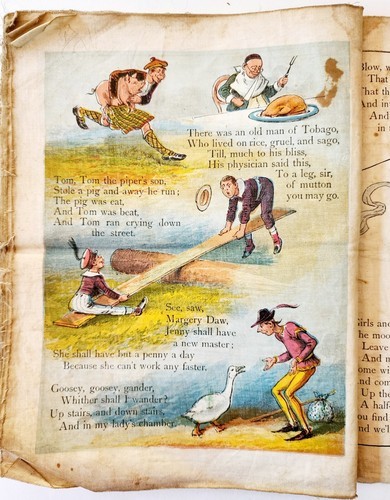 There was an old man of Tobago,
Who lived on rice, gruel, and sago,
Till, much to his bliss,
His physician said this,
To a leg, sir,
of mutton
you may go.
Tom, Tom the piper's son,
Stole a pig and away he run;
The pig was eat,
And Tom was beat,
And Tom ran crying down
the street.
See, saw,
Margery Daw,
Jenny shall have
a new master;
She shall have but a penny a day
Because she can't work any faster.
Goosey, goosey, gander,
Whither shall I wander?
Up stairs, and down stairs,
And in my lady's chamber.
Blow, w
That
That th
And in
And in
And
Leave
And
And
Up the
A half
you find
And we'l